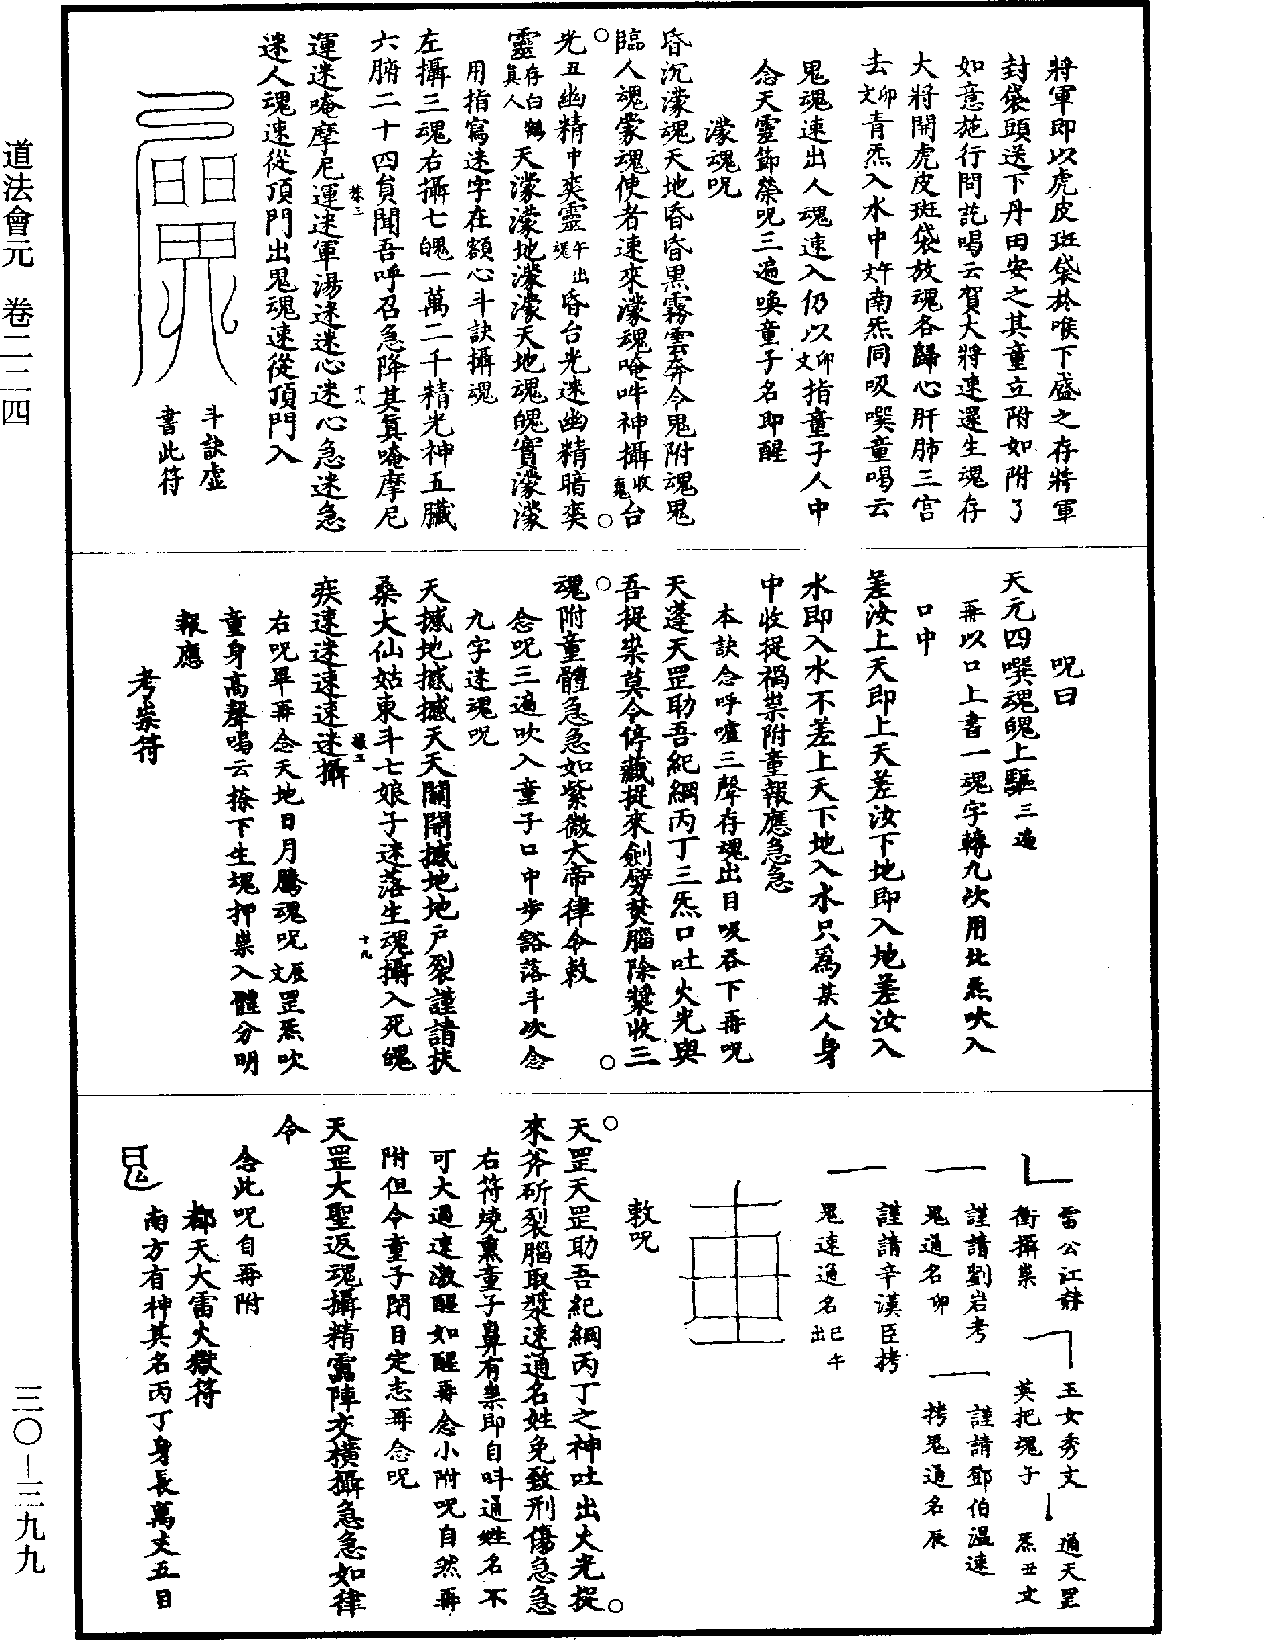 道法會元　卷二二四
三〇—三九九
將軍即以虎皮斑袋於喉下盛之存將軍
封袋頭送下丹田安之其童立附如附了
如意施行問訖喝云賀大將速還生魂存
大將開虎皮斑袋放魂各歸心肝肺三宮
去卯文青炁入水中午文南炁同吸噀童喝云
鬼魂速出人魂速入仍以卯文指童子人中
念天靈節榮呪三遍喚童子名即醒
濛魂呪
昏沉濛魂天地昏昏黑霧雲奔令鬼附魂鬼
臨人魂濛魂使者速來濛魂唵吽神攝收鬼台
光丑幽精中爽靈午出魂昏台光迷幽精暗爽
靈存白鶴真人天濛濛地濛濛天地魂魄實濛濛
用指寫迷字在額心斗訣攝魂
左攝三魂右攝七魄一萬二千精光神五臟
六腑二十四員聞吾呼召急降其真唵摩尼
運迷唵摩尼運迷軍湯迷迷心迷心急迷急
迷人魂速從頂門出鬼魂速從頂門入
斗訣虛
書此符
呪曰
天元四噀魂魄上驅三遍
再以口上書一魂字轉九次用北炁吹入
口中
差汝上天即上天差汝下地即入地差汝入
水即入水不差上天下地入水只爲某人身
中收捉禍祟附童報應急急
本訣念呼嚧三聲存魂出目吸吞下再呪
天蓬天罡助吾紀綱丙丁三炁口吐火光與
吾捉祟莫令停藏捉來劍劈焚腦除漿收三
魂附童體急急如紫微大帝律令敕
念呪三遍吹入童子口中步豁落斗次念
九字迷魂呪
天撼地撼撼天天關開撼地地戶裂謹請扶
桑大仙姑東斗七娘子迷落生魂攝入死魄
疾速迷速速迷攝
右呪畢再念天地日月騰魂呪辰文罡炁吹
童身高聲喝云搭下生魂押祟入體分明
報應
考祟符
雷公江赫
衝攝祟
玉女秀文
英把魂子
通天罡
炁丑文
謹請劉岩考
鬼通名卯
謹請鄧伯溫速
拷鬼通名辰
謹請辛漢臣拷
鬼速通名巳午出
敕呪
天罡天罡助吾紀綱丙丁之神吐出火光捉
來斧斫裂腦取漿速通名姓免致刑傷急急
右符燒熏童子鼻有祟即自叫通姓名不
可大過速激醒如醒再念小附呪自然再
附但令童子閉目定志再念呪
天罡大聖返魂攝精雷陣交橫攝急急如律
令
念此呪自再附
都天大雷火獄符
南方有神其名丙丁身長萬丈五目